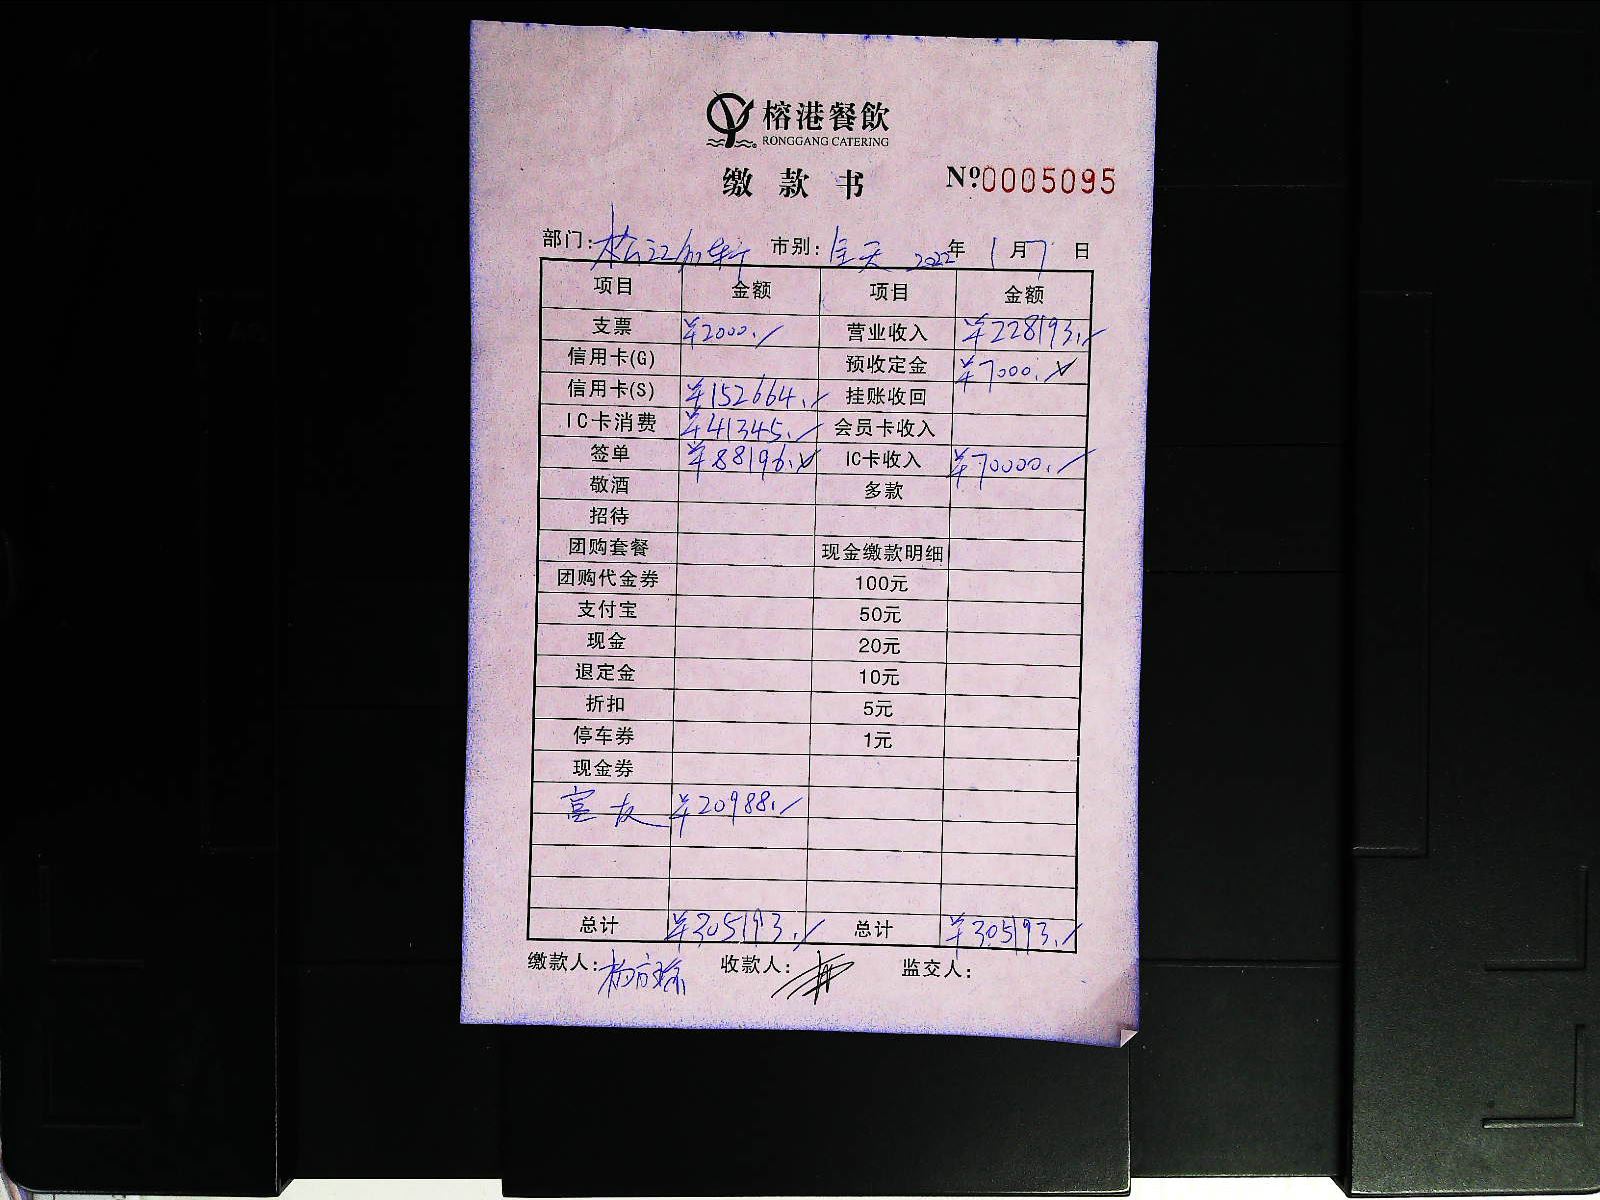 榕港餐飲
RONGGANG CATERING
缴款书 Nº0005095
部门: 松江 市别: 全天 2022年1月7日
项目 金额 项目 金额
支票 ¥2000.- 营业收入 ¥228193.-
信用卡(G) 预收定金 ¥7000.-
信用卡(S) ¥152664.- 挂账收回
IC卡消费 ¥41345.- 会员卡收入
签单 ¥88196.- IC卡收入 ¥70000.-
敬酒 多款
招待
团购套餐 现金缴款明细
团购代金券 100元
支付宝 50元
现金 20元
退定金 10元
折扣 5元
停车券 1元
现金券
¥20988.-
总计 ¥305193.- 总计 ¥305193.-
缴款人: 收款人: 监交人: